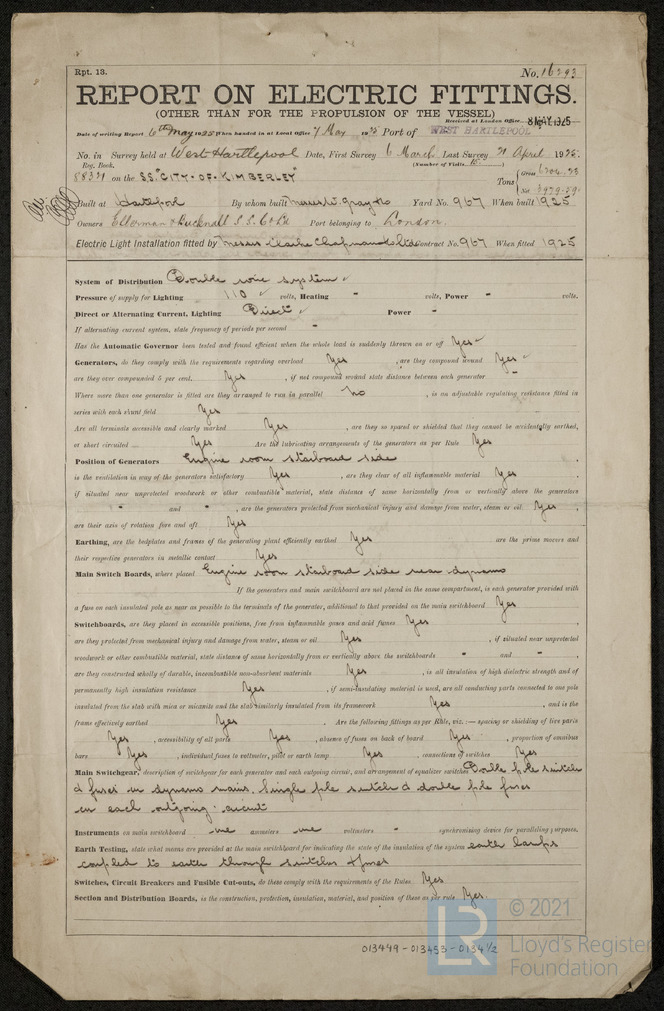 Rpt. 13.
No. 16293
REPORT ON ELECTRIC FITTINGS.
(OTHER THAN FOR THE PROPULSION OF THE VESSEL)
Received at London Office 8 MAY 1925
Date of writing Report 6th May 1925 When handed in at Local Office 7 May 1925 Port of WEST HARTLEPOOL
No. in Survey held at West Hartlepool Date, First Survey 6 March Last Survey 21 April 1925.
Reg. Book. (Number of Visits
on the S.S. "CITY-OF-KIMBERLEY" Tons { Gross
Net
Built at Hartlepool By whom built Messrs W. Gray & Co Yard No. 967 When built 1925
Owners Ellerman & Bucknall S.S. Co Ld Port belonging to London.
Electric Light Installation fitted by Messrs Clarke Chapman & Co Ltd Contract No. 967 When fitted 1925
System of Distribution Double wire system
Pressure of supply for Lighting 110 volts, Heating " volts, Power " volts.
Direct or Alternating Current, Lighting Direct Power "
If alternating current system, state frequency of periods per second "
Has the Automatic Governor been tested and found efficient when the whole load is suddenly thrown on or off Yes
Generators, do they comply with the requirements regarding overload Yes, are they compound wound Yes
are they over compounded 5 per cent. Yes, if not compound wound state distance between each generator "
Where more than one generator is fitted are they arranged to run in parallel No, is an adjustable regulating resistance fitted in
series with each shunt field Yes
Are all terminals accessible and clearly marked Yes, are they so spared or shielded that they cannot be accidentally earthed,
or short circuited Yes Are the lubricating arrangements of the generators as per Rule Yes
Position of Generators Engine room starboard side
is the ventilation in way of the generators satisfactory Yes, are they clear of all inflammable material Yes,
if situated near unprotected woodwork or other combustible material, state distance of same horizontally from or vertically above the generators
" and ", are the generators protected from mechanical injury and damage from water, steam or oil Yes,
are their axis of rotation fore and aft Yes
Earthing, are the bedplates and frames of the generating plant efficiently earthed Yes are the prime movers and
their respective generators in metallic contact Yes
Main Switch Boards, where placed Engine room starboard side near dynamo
If the generators and main switchboard are not placed in the same compartment, is each generator provided with
a fuse on each insulated pole as near as possible to the terminals of the generator, additional to that provided on the main switchboard Yes
Switchboards, are they placed in accessible positions, free from inflammable gases and acid fumes Yes,
are they protected from mechanical injury and damage from water, steam or oil Yes, if situated near unprotected
woodwork or other combustible material, state distance of same horizontally from or vertically above the switchboards " and ",
are they constructed wholly of durable, incombustible non-absorbent materials Yes, is all insulation of high dielectric strength and of
permanently high insulation resistance Yes, if semi-insulating material is used, are all conducting parts connected to one pole
insulated from the slab with mica or micanite and the slab similarly insulated from its framework Yes, and is the
frame effectively earthed Yes. Are the following fittings as per Rule, viz.:— spacing or shielding of live parts
Yes, accessibility of all parts Yes, absence of fuses on back of board Yes, proportion of omnibus
bars Yes, individual fuses to voltmeter, pilot or earth lamp Yes, connections of switches Yes
Main Switchgear, description of switchgear for each generator and each outgoing circuit, and arrangement of equalizer switches Double pole switch
& fuses in dynamo mains. Single pole switch & double pole fuses
on each outgoing circuit
Instruments on main switchboard one ammeters one voltmeters " synchronising device for paralleling purposes.
Earth Testing, state what means are provided at the main switchboard for indicating the state of the insulation of the system earth lamps
coupled to earth through switches & fuses
Switches, Circuit Breakers and Fusible Cut-outs, do these comply with the requirements of the Rules Yes
Section and Distribution Boards, is the construction, protection, insulation, material, and position of these as per rule Yes.
013449-013453-0134½
LR
© 2021
Lloyd's Register
Foundation